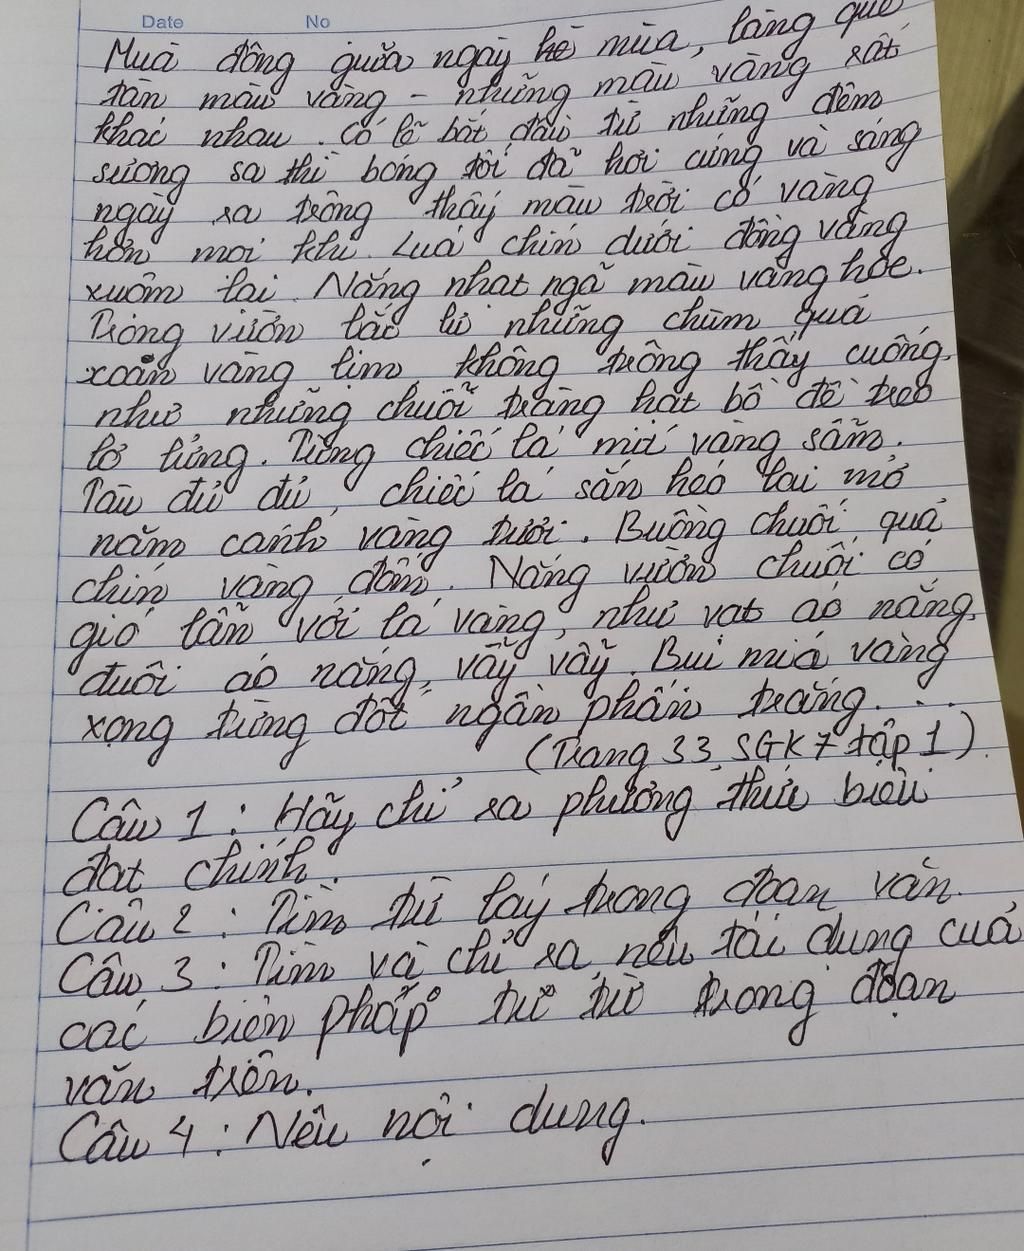 Date No
Muà đông giữa ngày mùa, làng quê
tàn màu vàng - những màu vàng rất
khác nhau. Có lẽ bắt đầu từ những đêm
sương sa thì bóng tối đã hơi cứng và sáng
ngày ra trông thấy màu trời có vàng
hơn mọi khi. Luá chín dưới đồng vàng
xuộm lại. Nắng nhạt ngả màu vàng hoe.
Trong vườn lắc lư những chùm quả
xoan vàng lịm không trông thấy cuống,
như những chuỗi tràng hạt bồ đề treo
lơ lửng. Từng chiếc lá mít vàng sẫm.
Tàu đu đủ, chiếc lá sắn héo lại mở
năm cánh vàng tươi. Buồng chuối, quả
chín vàng đốm. Nắng vườn chuối có
gió lẫn với lá vàng, như vạt áo nắng,
đuôi áo nắng, vẫy vẫy. Bụi miá vàng
xọng từng đốt ngấn phấn trắng....
(Trang 33, SGK 7 tập 1).
Câu 1: Hãy chỉ ra phương thức biểu
đạt chính.
Câu 2: Tìm từ láy trong đoạn văn.
Câu 3: Tìm và chỉ ra, nêu tái dụng cuả
các biện pháp tu từ trong đoạn
văn trên.
Câu 4: Nêu nội dung.